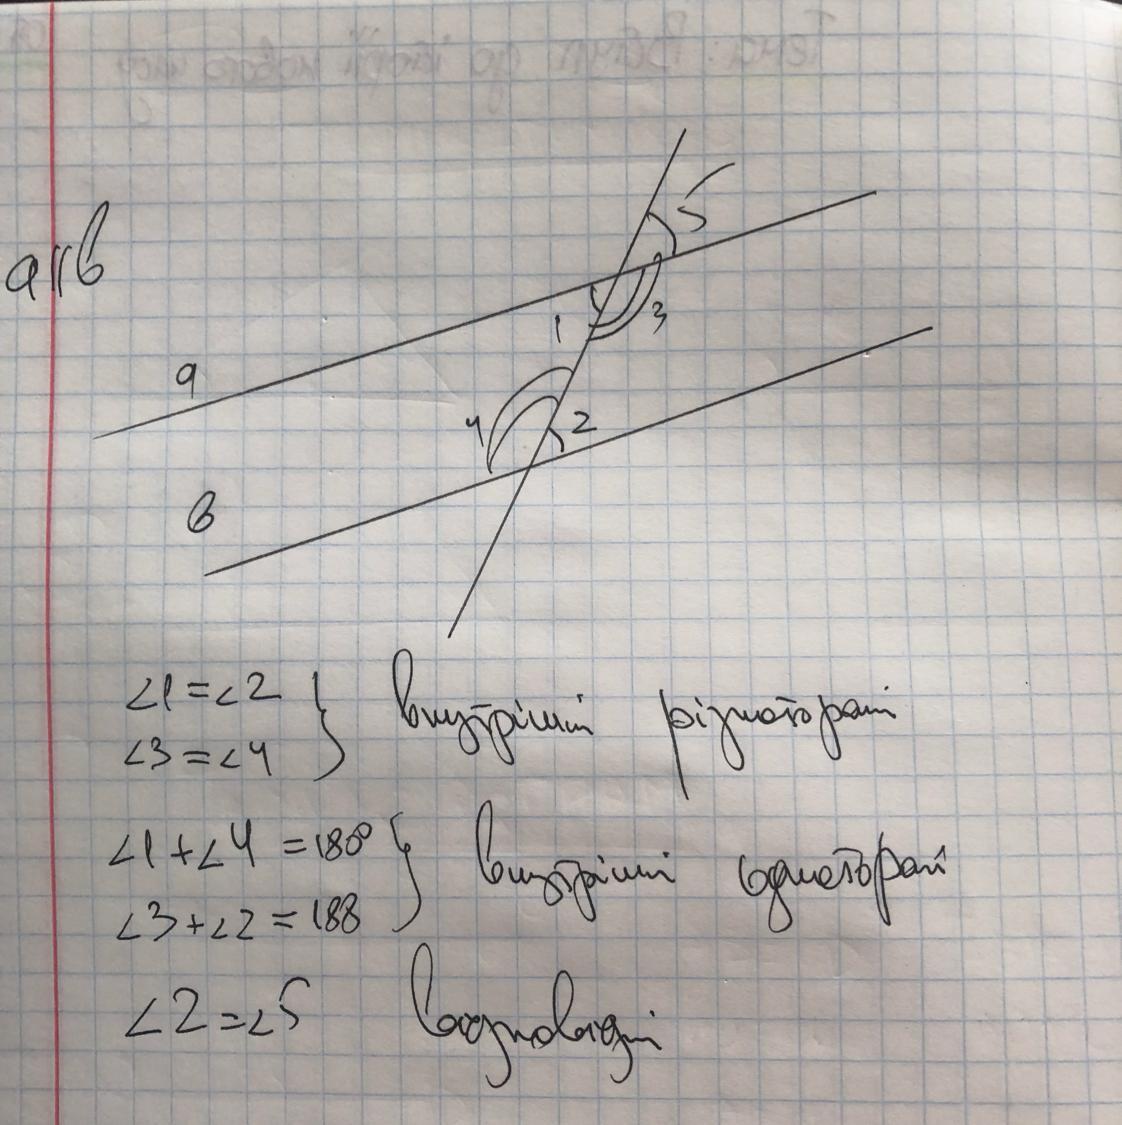 a||b
5
1
3
a
4
2
b
∠1=∠2
∠3=∠4
} внутрішні різносторонні
∠1+∠4=180°
∠3+∠2=188
} внутрішні односторонні
∠2=∠5 відповідні